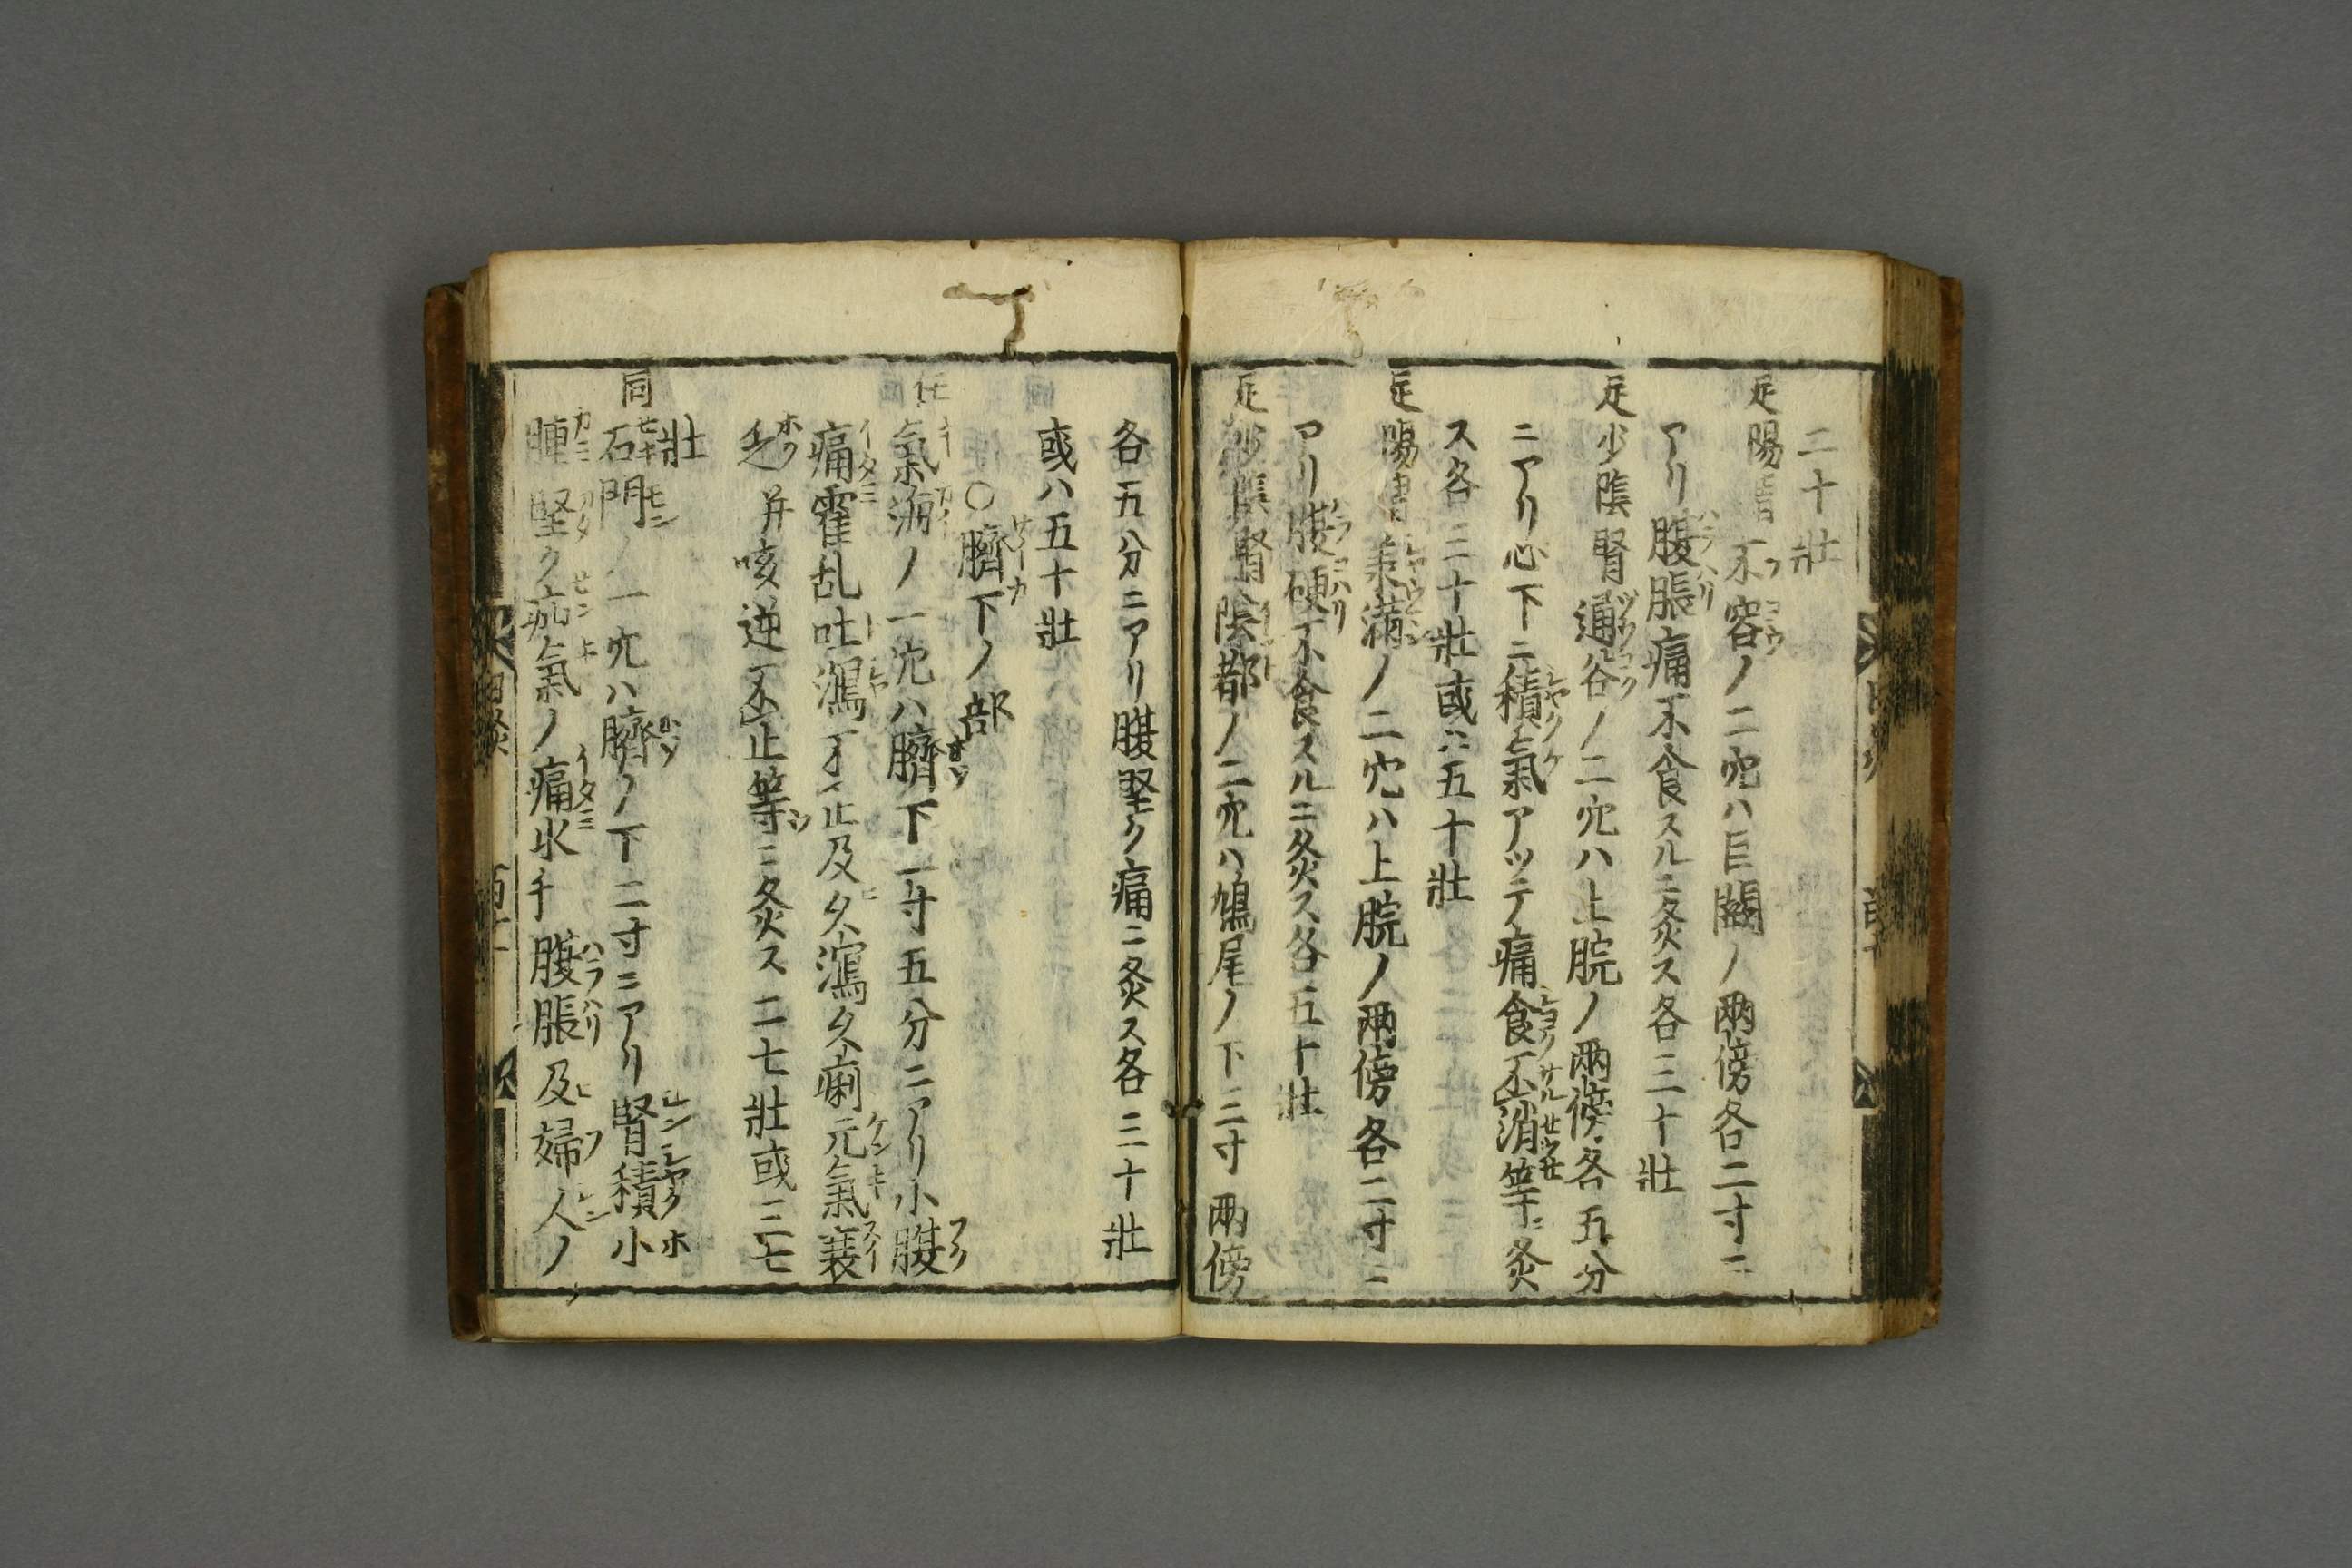 二十壮
足陽胃不容ノ二穴ハ巨闕ノ兩傍各二寸ニ
アリ腹脹痛不食スルニ灸ス各三十壮
足少陰腎通谷ノ二穴ハ上脘ノ兩傍各五分
ニアリ心下ニ積氣アツテ痛食不消等ニ灸
ス各三十壮或ハ五十壮
足陽胃承滿ノ二穴ハ上脘ノ兩傍各二寸ニ
アリ腹硬不食スルニ灸ス各五十壮
足少陰腎陰都ノ二穴ハ鳩尾ノ下三寸兩傍
各五分ニアリ腹堅ク痛ニ灸ス各三十壮
或ハ五十壮
○臍下ノ部
任氣海ノ一穴ハ臍下一寸五分ニアリ小腹
痛霍乱吐瀉不止及久瀉久痢元氣衰
乏并咳逆不止等ニ灸ス二七壮或三七
壮
同石門ノ一穴ハ臍ノ下二寸ニアリ腎積小
腫堅ク疝氣ノ痛水千腹脹及婦人ノ